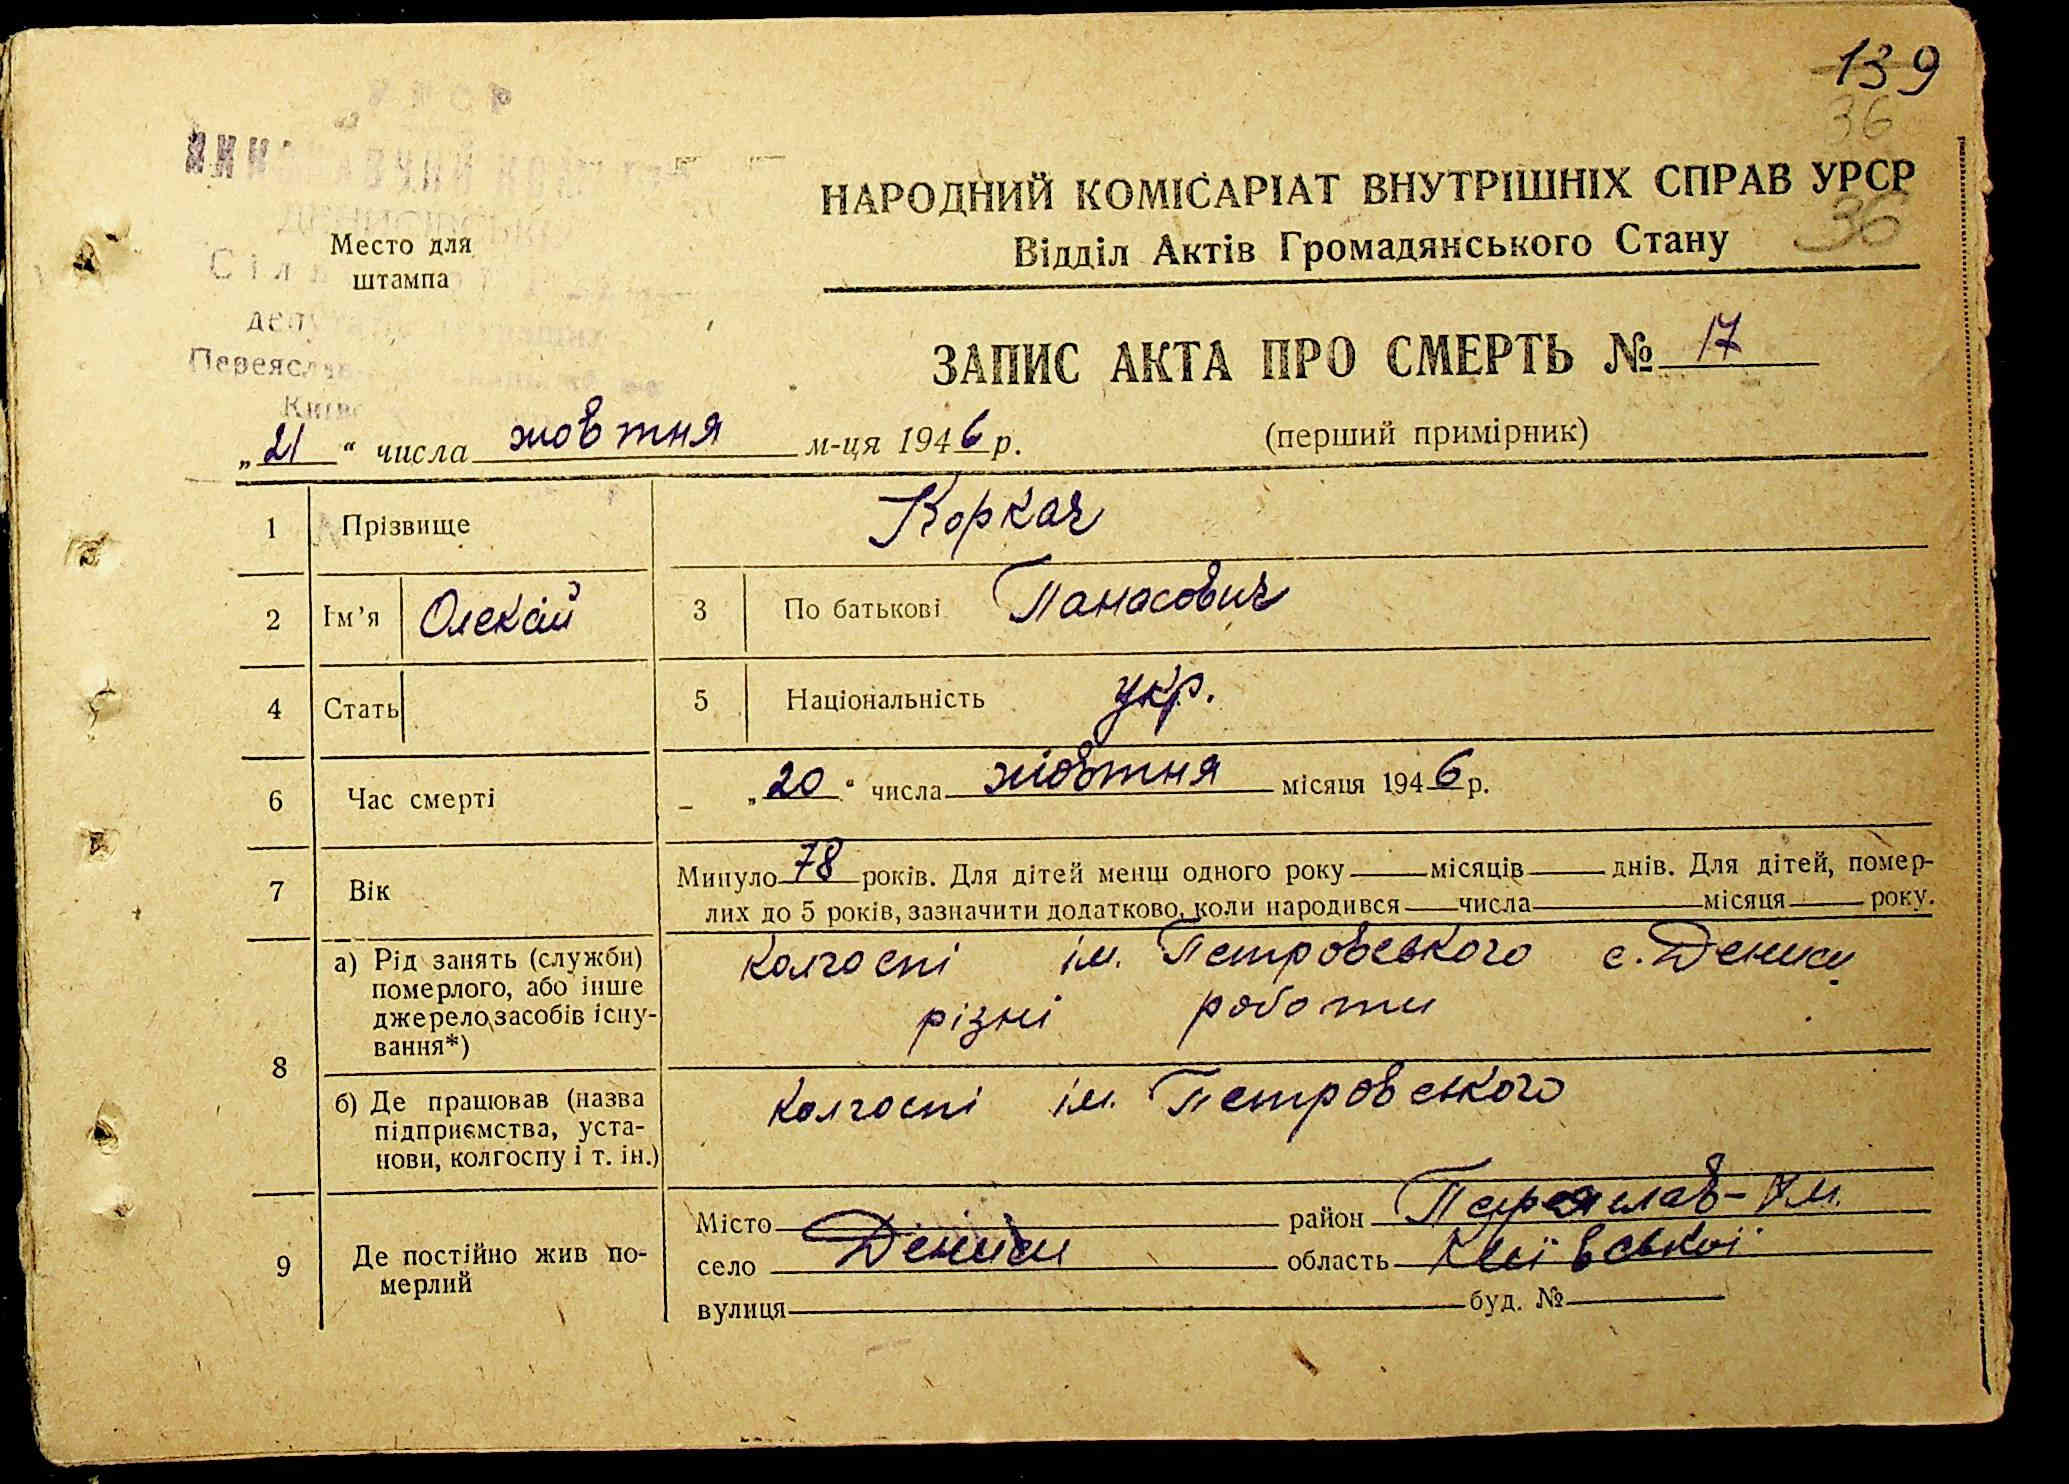 139
36
НАРОДНИЙ КОМІСАРІАТ ВНУТРІШНІХ СПРАВ УРСР
36
Відділ Актів Громадянського Стану
Место для
штампа
ЗАПИС АКТА ПРО СМЕРТЬ № 17
„21“ числа жовтня м-ця 1946 р.
(перший примірник)
1 Прізвище Коркач
2 Ім'я Олексій 3 По батькові Панасович
4 Стать 5 Національність укр.
6 Час смерті „20“ числа жовтня місяця 1946 р.
7 Вік Минуло 78 років. Для дітей менш одного року місяців днів. Для дітей, помер-
лих до 5 років, зазначити додатково, коли народився числа місяця року.
8 а) Рід занять (служби)
померлого, або інше
джерело засобів існу-
вання*)
колгоспі ім. Петровського с. Дениси
різні роботи
б) Де працював (назва
підприємства, уста-
нови, колгоспу і т. ін.)
колгоспі ім. Петровського
9 Де постійно жив по-
мерлий
Місто район Переяслав-Хм.
село Дениси область Київської
вулиця буд. №